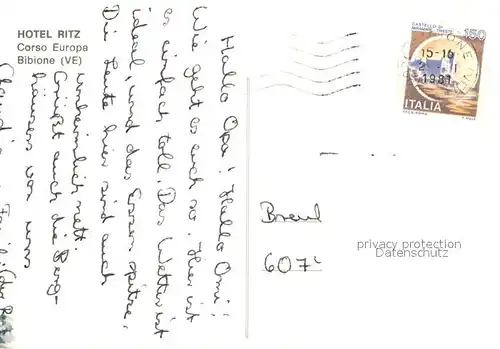 HOTEL RITZ
Corso Europa
Bibione (VE)
Hallo Opa! Hallo Omi!
Wie geht es euch so. Hier ist
es einfach toll. Das Wetter ist
ideal, und das Essen spitze.
Die Leute hier sind auch
unheimlich nett.
Grüßt auch die Berg-
häusers von uns
CASTELLO DI
MIRAMARE - TRIESTE
150
15-16
1981
ITALIA
Breul
607
privacy protection
Datenschutz